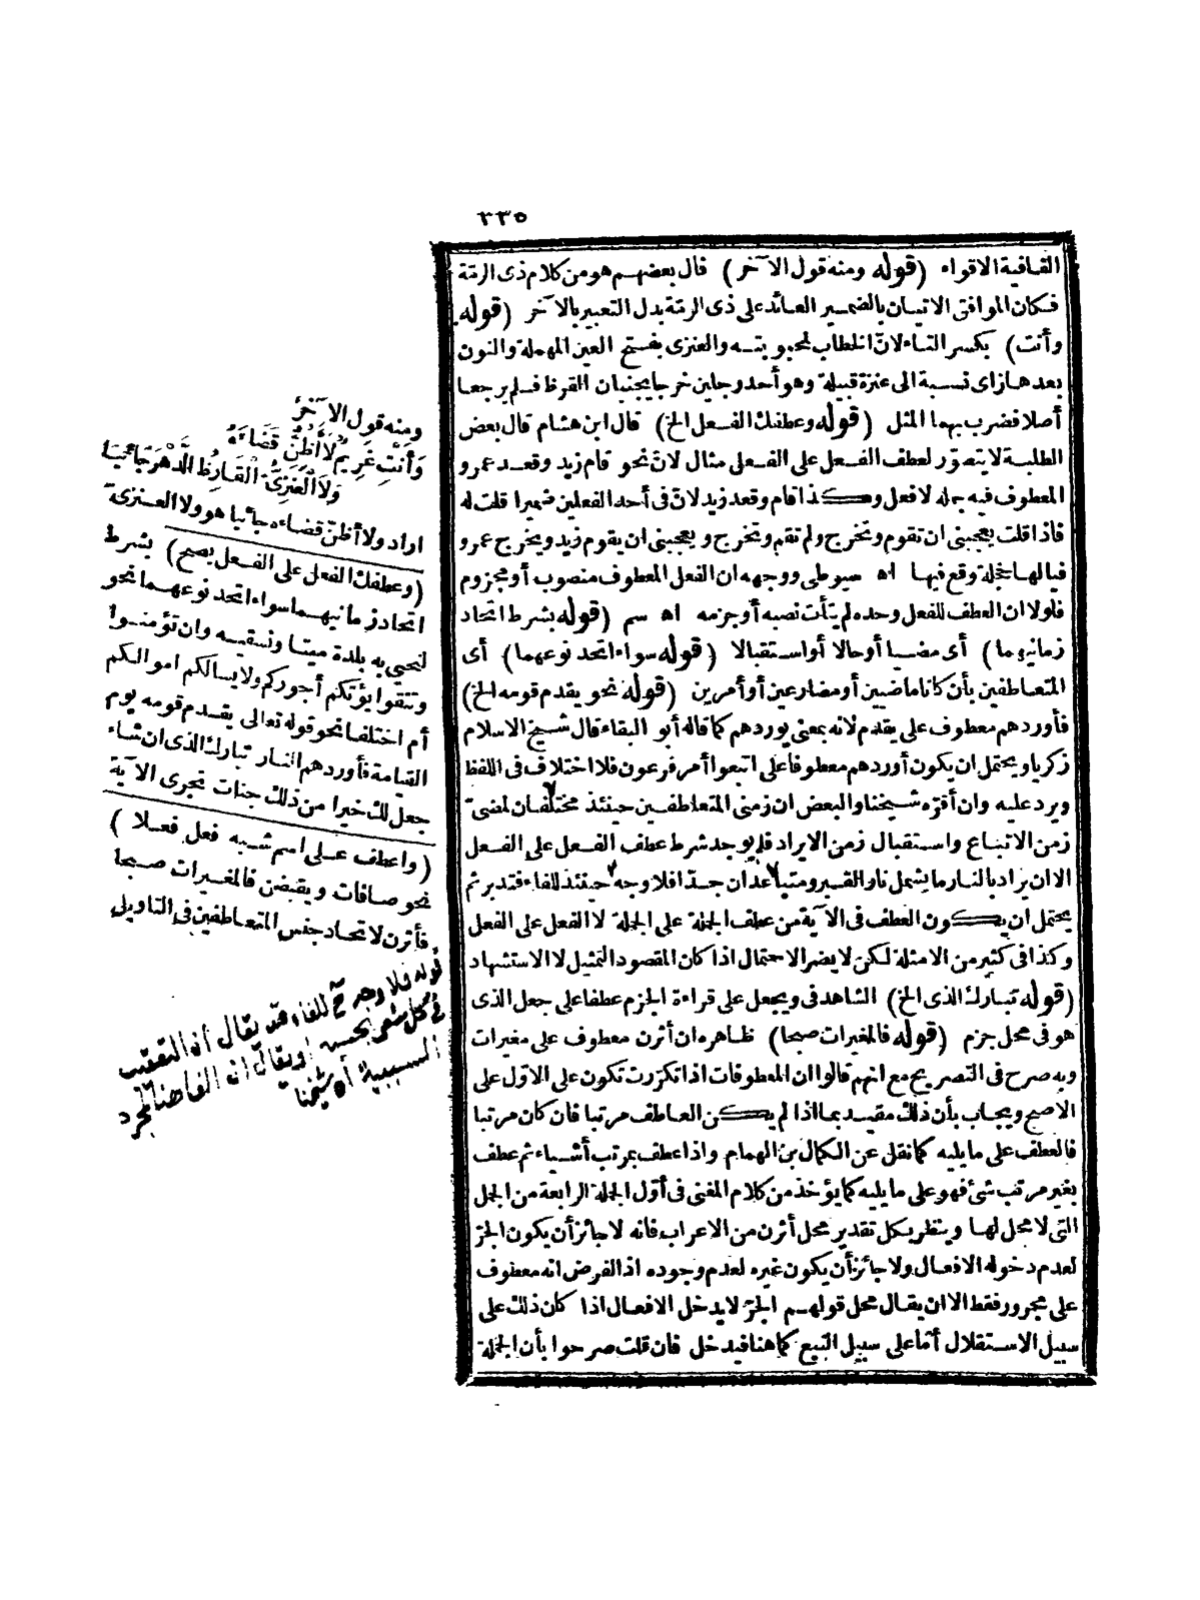 ٢٣٥
القافية الاقواء (قوله ومنه قول الآخر) قال بعضهم هو من كلام ذى الرمّة
فكان الموافق الاتيان بالضمير العائد على ذى الرمّة بدل التعبير بالآخر (قوله
وأنت) بكسر التاء لانّ الخطاب لمحبوبته والعنزى بفتح العين المهملة والنون
بعدها زاى نسبة الى عنزة قبيلة وهو أحد رجلين خرجا يجنيان القرظ فلم يرجعا
أصلا فضرب بهما المثل (قوله وعطفك الفعل الخ) قال ابن هشام قال بعض
الطلبة لا يتصوّر لعطف الفعل على الفعل مثال لانّ نحو قام زيد وقعد عمرو
المعطوف فيه جملة لا فعل وكذا قام وقعد زيد لانّ فى أحد الفعلين ضميرا قلت له
فاذا قلت يعجبنى ان تقوم وتخرج ولم تقم وتخرج و يعجبنى ان يقوم زيد ويخرج عمرو
فيالها خجلة وقع فيها اه سيوطى ووجهه ان الفعل المعطوف منصوب أو مجزوم
فلولا ان العطف للفعل وحده لم يتأت نصبه أو جزمه اه سم (قوله بشرط اتحاد
زمانيهما) أى مضيا أو حالا أو استقبالا (قوله سواء اتحد نوعهما) أى
المتعاطفين بأن كانا ماضيين أو مضارعين أو أمرين (قوله نحو يقدم قومه الخ)
فأوردهم معطوف على يقدم لانه بمعنى يوردهم كما قاله أبو البقاء قال شيخ الاسلام
زكريا ويحتمل ان يكون أوردهم معطوفا على اتبعوا أمر فرعون فلا اختلاف فى اللفظ
ويرد عليه وان أقرّه شيخنا والبعض ان زمنى المتعاطفين حينئذ مختلفان لمضىّ
زمن الاتباع واستقبال زمن الايراد فلم يوجد شرط عطف الفعل على الفعل
الا ان يراد بالنار ما يشمل نار القبر ومتباعدان جدّا فلا وجه حينئذ للفاء فتدبر ثم
يحتمل ان يكون العطف فى الآية من عطف الجملة على الجملة لا الفعل على الفعل
وكذا فى كثير من الامثلة لكن لا يضر الاحتمال اذا كان المقصود التمثيل لا الاستشهاد
(قوله تبارك الذى الخ) الشاهد فى ويجعل على قراءة الجزم عطفا على جعل الذى
هو فى محل جزم (قوله فالمغيرات صبحا) ظاهره ان أثرن معطوف على مغيرات
وبه صرح فى التصريح مع انهم قالوا ان المعطوفات اذا تكررت تكون على الاوّل على
الاصح ويجاب بأن ذلك مقيد بما اذا لم يكن العاطف مرتبا فان كان مرتبا
فالعطف على ما يليه كما نقل عن الكمال بن الهمام واذا عطف بمرتب أشياء ثم عطف
بغير مرتب شئ فهو على ما يليه كما يؤخذ من كلام المغنى فى أوّل الجملة الرابعة من الجمل
التى لا محل لها وينظر بكل تقدير محل أثرن من الاعراب فانه لا جائز أن يكون الجرّ
لعدم دخوله الافعال ولا جائز أن يكون غيره لعدم وجوده اذ الفرض انه معطوف
على مجرور فقط الا ان يقال محل قولهم الجرّ لا يدخل الافعال اذا كان ذلك على
سبيل الاستقلال أمّا على سبيل التبع كما هنا فيدخل فان قلت صرحوا بأن الجملة
ومنه قول الآخر
وَأَنْتِ غَرِيمٌ لَا أَظُنُّ قَضَاءَهُ
وَلَا الْعَنَزِىُّ الْقَارِظُ الدَّهْرَ جَائِيَا
اراد ولا أظنّ قضاءه جائيا هو ولا العنزىّ
(وعطفك الفعل على الفعل يصح) بشرط
اتحاد زمانيهما سواء اتحد نوعهما نحو
لنحيى به بلدة ميتا ونسقيه وان تؤمنوا
وتتقوا يؤتكم أجوركم ولا يسألكم اموالكم
أم اختلفا نحو قوله تعالى يقدم قومه يوم
القيامة فأوردهم النار تبارك الذى ان شاء
جعل لك خيرا من ذلك جنات تجرى الآية
(واعطف على اسم شبه فعل فعلا)
نحو صافات ويقبضن فالمغيرات صبحا
فأثرن لاتحاد جنس المتعاطفين فى التاويل
قوله فلا وجه ح للفاء قد يقال ان التعقيب
فى كل شئ بحسبه او يقال ان الفا هنا لمجرد
السببية اه شيخنا